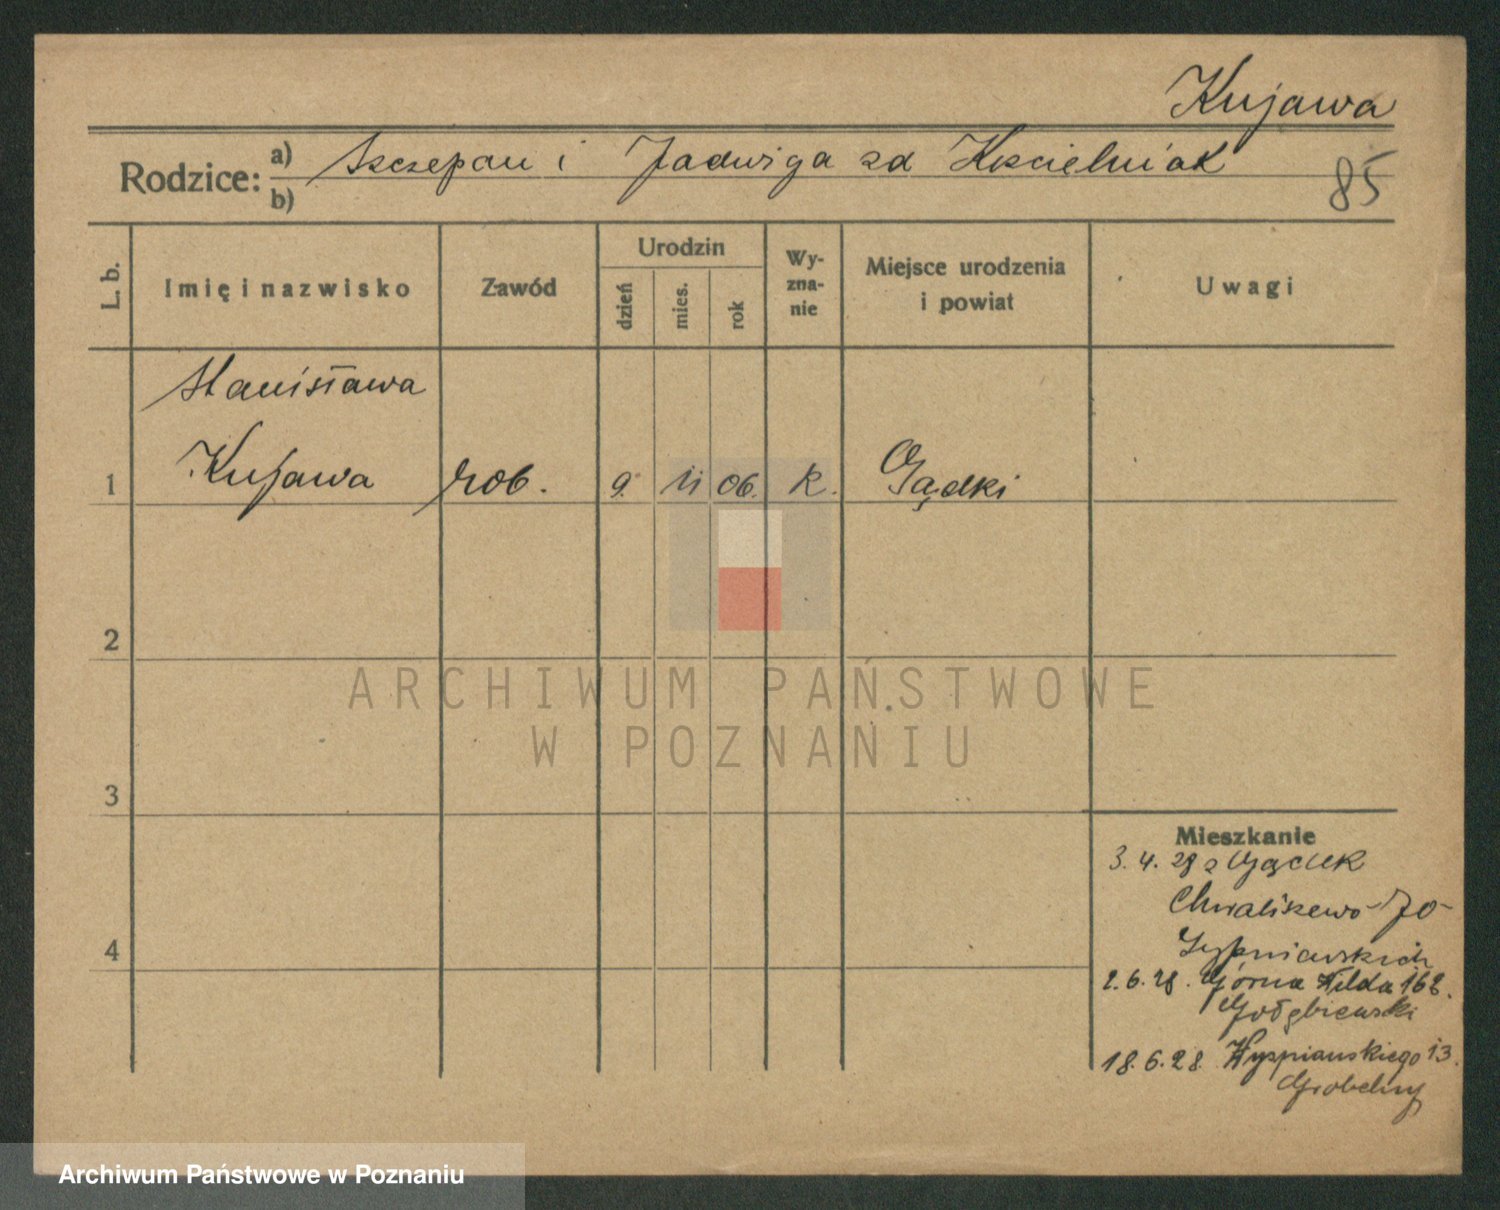 Kujawa
Rodzice: a) Szczepan i Jadwiga zd Kościelniak
b)
85
L. b.
Imię i nazwisko
Zawód
Urodzin
dzień
mies.
rok
Wy-
zna-
nie
Miejsce urodzenia
i powiat
Uwagi
Stanisława
1 Kujawa rob. 9. 11 06. k. Gądki
2
3
4
ARCHIWUM PAŃSTWOWE
W POZNANIU
Mieszkanie
3. 4. 28 z Gądek
Chwaliszewo 70
2.6.28. Górna Wilda 162.
Gołębiewski
18.6.28 Wyspiańskiego 13.
Grobelny
Archiwum Państwowe w Poznaniu